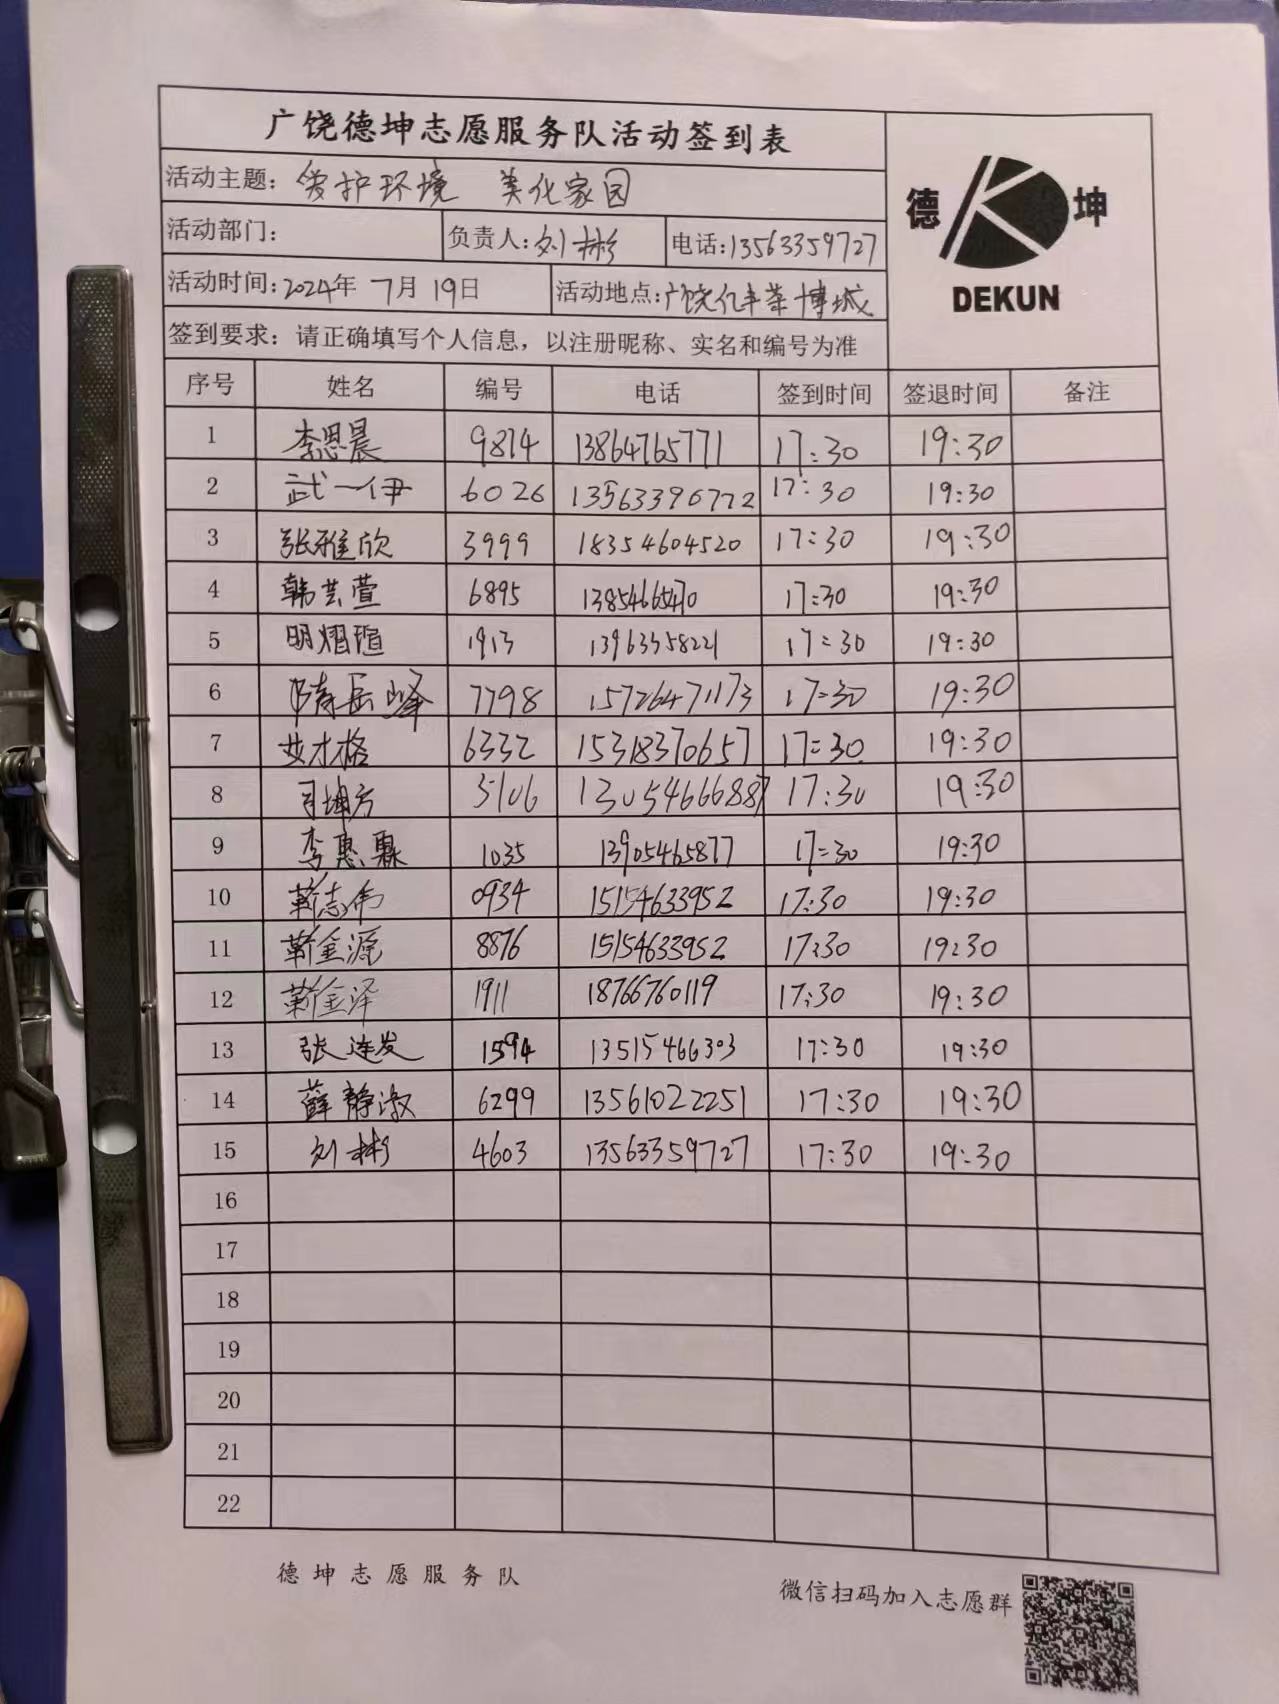 广饶德坤志愿服务队活动签到表
德 坤
DEKUN
活动主题: 爱护环境 美化家园
活动部门: 负责人: 刘彬 电话: 13563359727
活动时间: 2024年 7月 19日 活动地点: 广饶亿丰茶博城
签到要求: 请正确填写个人信息，以注册昵称、实名和编号为准
序号 姓名 编号 电话 签到时间 签退时间 备注
1 李思晨 9874 13864765771 17:30 19:30
2 武一伊 6026 13563396772 17:30 19:30
3 张雅欣 3999 18354604520 17:30 19:30
4 韩芸萱 6895 13854665470 17:30 19:30
5 明熠瑄 1913 13963358221 17:30 19:30
6 隋岳峰 7798 15726471173 17:30 19:30
7 6332 15318370657 17:30 19:30
8 司坤方 5106 13054666887 17:30 19:30
9 李惠霖 1035 13905465877 17:30 19:30
10 靳志伟 0934 15154633952 17:30 19:30
11 靳金源 8876 15154633952 17:30 19:30
12 靳金泽 1911 18766760119 17:30 19:30
13 张连发 1594 13515466303 17:30 19:30
14 薛静淑 6299 13561022251 17:30 19:30
15 刘彬 4603 13563359727 17:30 19:30
16
17
18
19
20
21
22
德坤志愿服务队
微信扫码加入志愿群